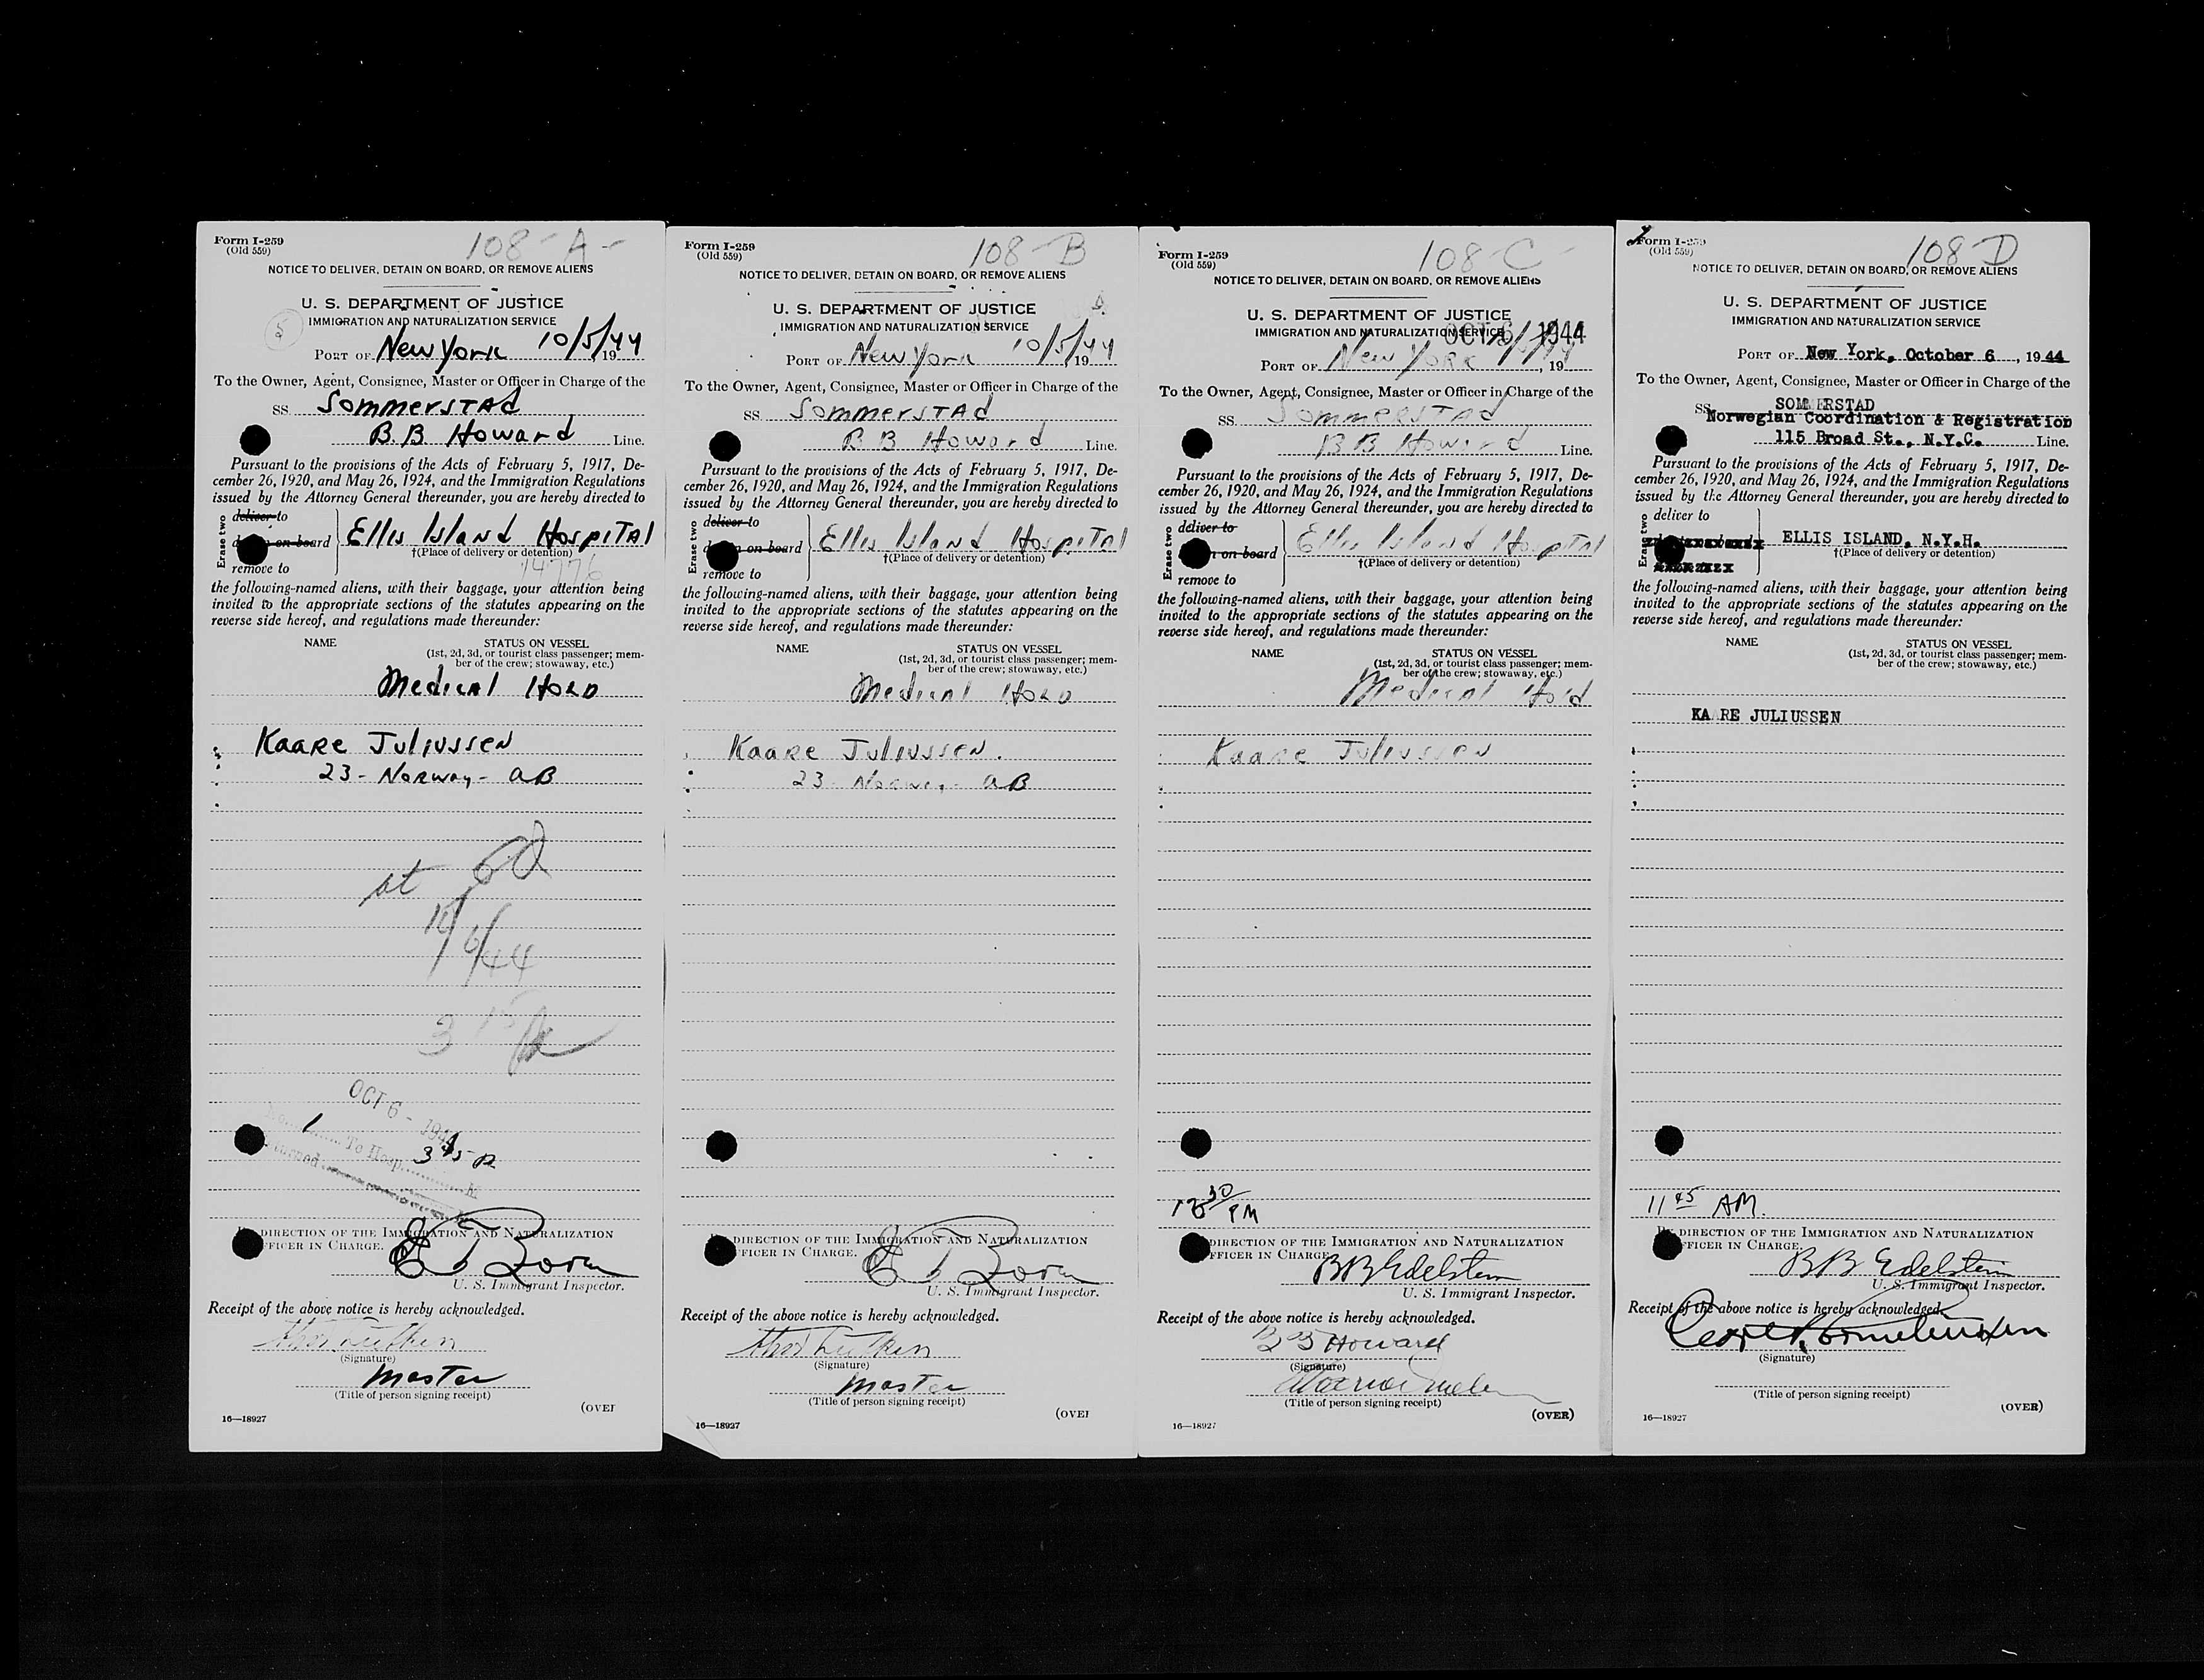 Form I-259
(Old 559)
108-A-
NOTICE TO DELIVER, DETAIN ON BOARD, OR REMOVE ALIENS
U. S. DEPARTMENT OF JUSTICE
IMMIGRATION AND NATURALIZATION SERVICE
5
PORT OF New York 10/5/44, 19
To the Owner, Agent, Consignee, Master or Officer in Charge of the
SS. Sommerstad
B.B Howard Line.
Pursuant to the provisions of the Acts of February 5, 1917, De-
cember 26, 1920, and May 26, 1924, and the Immigration Regulations
issued by the Attorney General thereunder, you are hereby directed to
Erase two
deliver to
on board
remove to
Ellis Island Hospital
†(Place of delivery or detention)
74776
the following-named aliens, with their baggage, your attention being
invited to the appropriate sections of the statutes appearing on the
reverse side hereof, and regulations made thereunder:
NAME STATUS ON VESSEL
(1st, 2d, 3d, or tourist class passenger; mem-
ber of the crew; stowaway, etc.)
Medical Hold
Kaare Juliussen
23 - Norway - AB
at
10/6/44
3 15
OCT 6 - 1944
1 To Hosp. M
3 45 P
DIRECTION OF THE IMMIGRATION AND NATURALIZATION
OFFICER IN CHARGE.
U. S. Immigrant Inspector.
Receipt of the above notice is hereby acknowledged.
(Signature)
Master
(Title of person signing receipt)
(OVER
16—18927
Form I-259
(Old 559)
108-B
NOTICE TO DELIVER, DETAIN ON BOARD, OR REMOVE ALIENS
U. S. DEPARTMENT OF JUSTICE
IMMIGRATION AND NATURALIZATION SERVICE
PORT OF New York 10/5/44, 19
To the Owner, Agent, Consignee, Master or Officer in Charge of the
SS. Sommerstad
B B Howard Line.
Pursuant to the provisions of the Acts of February 5, 1917, De-
cember 26, 1920, and May 26, 1924, and the Immigration Regulations
issued by the Attorney General thereunder, you are hereby directed to
Erase two
deliver to
on board
remove to
Ellis Island Hospital
†(Place of delivery or detention)
the following-named aliens, with their baggage, your attention being
invited to the appropriate sections of the statutes appearing on the
reverse side hereof, and regulations made thereunder:
NAME STATUS ON VESSEL
(1st, 2d, 3d, or tourist class passenger; mem-
ber of the crew; stowaway, etc.)
Medical Hold
Kaare Juliussen.
23 - Norway - AB
DIRECTION OF THE IMMIGRATION AND NATURALIZATION
OFFICER IN CHARGE.
U. S. Immigrant Inspector.
Receipt of the above notice is hereby acknowledged.
(Signature)
Master
(Title of person signing receipt)
(OVER
16—18927
Form I-259
(Old 559)
108-C-
NOTICE TO DELIVER, DETAIN ON BOARD, OR REMOVE ALIENS
U. S. DEPARTMENT OF JUSTICE
IMMIGRATION AND NATURALIZATION SERVICE
OCT 6 1944
PORT OF New York, 19
To the Owner, Agent, Consignee, Master or Officer in Charge of the
SS. Sommerstad
B B Howard Line.
Pursuant to the provisions of the Acts of February 5, 1917, De-
cember 26, 1920, and May 26, 1924, and the Immigration Regulations
issued by the Attorney General thereunder, you are hereby directed to
Erase two
deliver to
on board
remove to
Ellis Island Hospital
†(Place of delivery or detention)
the following-named aliens, with their baggage, your attention being
invited to the appropriate sections of the statutes appearing on the
reverse side hereof, and regulations made thereunder:
NAME STATUS ON VESSEL
(1st, 2d, 3d, or tourist class passenger; mem-
ber of the crew; stowaway, etc.)
Medical Hold
Kaare Juliussen
30 PM
DIRECTION OF THE IMMIGRATION AND NATURALIZATION
OFFICER IN CHARGE.
BB Edelstein
U. S. Immigrant Inspector.
Receipt of the above notice is hereby acknowledged.
B B Howard
(Signature)
(Title of person signing receipt)
(OVER)
16—18927
Form I-259
(Old 559)
108-D
NOTICE TO DELIVER, DETAIN ON BOARD, OR REMOVE ALIENS
U. S. DEPARTMENT OF JUSTICE
IMMIGRATION AND NATURALIZATION SERVICE
PORT OF New York, October 6, 1944
To the Owner, Agent, Consignee, Master or Officer in Charge of the
SS. SOMMERSTAD
Norwegian Coordination & Registration
115 Broad St., N.Y.C. Line.
Pursuant to the provisions of the Acts of February 5, 1917, De-
cember 26, 1920, and May 26, 1924, and the Immigration Regulations
issued by the Attorney General thereunder, you are hereby directed to
Erase two
deliver to
ELLIS ISLAND, N.Y.H.
†(Place of delivery or detention)
the following-named aliens, with their baggage, your attention being
invited to the appropriate sections of the statutes appearing on the
reverse side hereof, and regulations made thereunder:
NAME STATUS ON VESSEL
(1st, 2d, 3d, or tourist class passenger; mem-
ber of the crew; stowaway, etc.)
KAARE JULIUSSEN
11 45 AM.
By DIRECTION OF THE IMMIGRATION AND NATURALIZATION
OFFICER IN CHARGE.
BB Edelstein
U. S. Immigrant Inspector.
Receipt of the above notice is hereby acknowledged.
(Signature)
(Title of person signing receipt)
(OVER)
16—18927